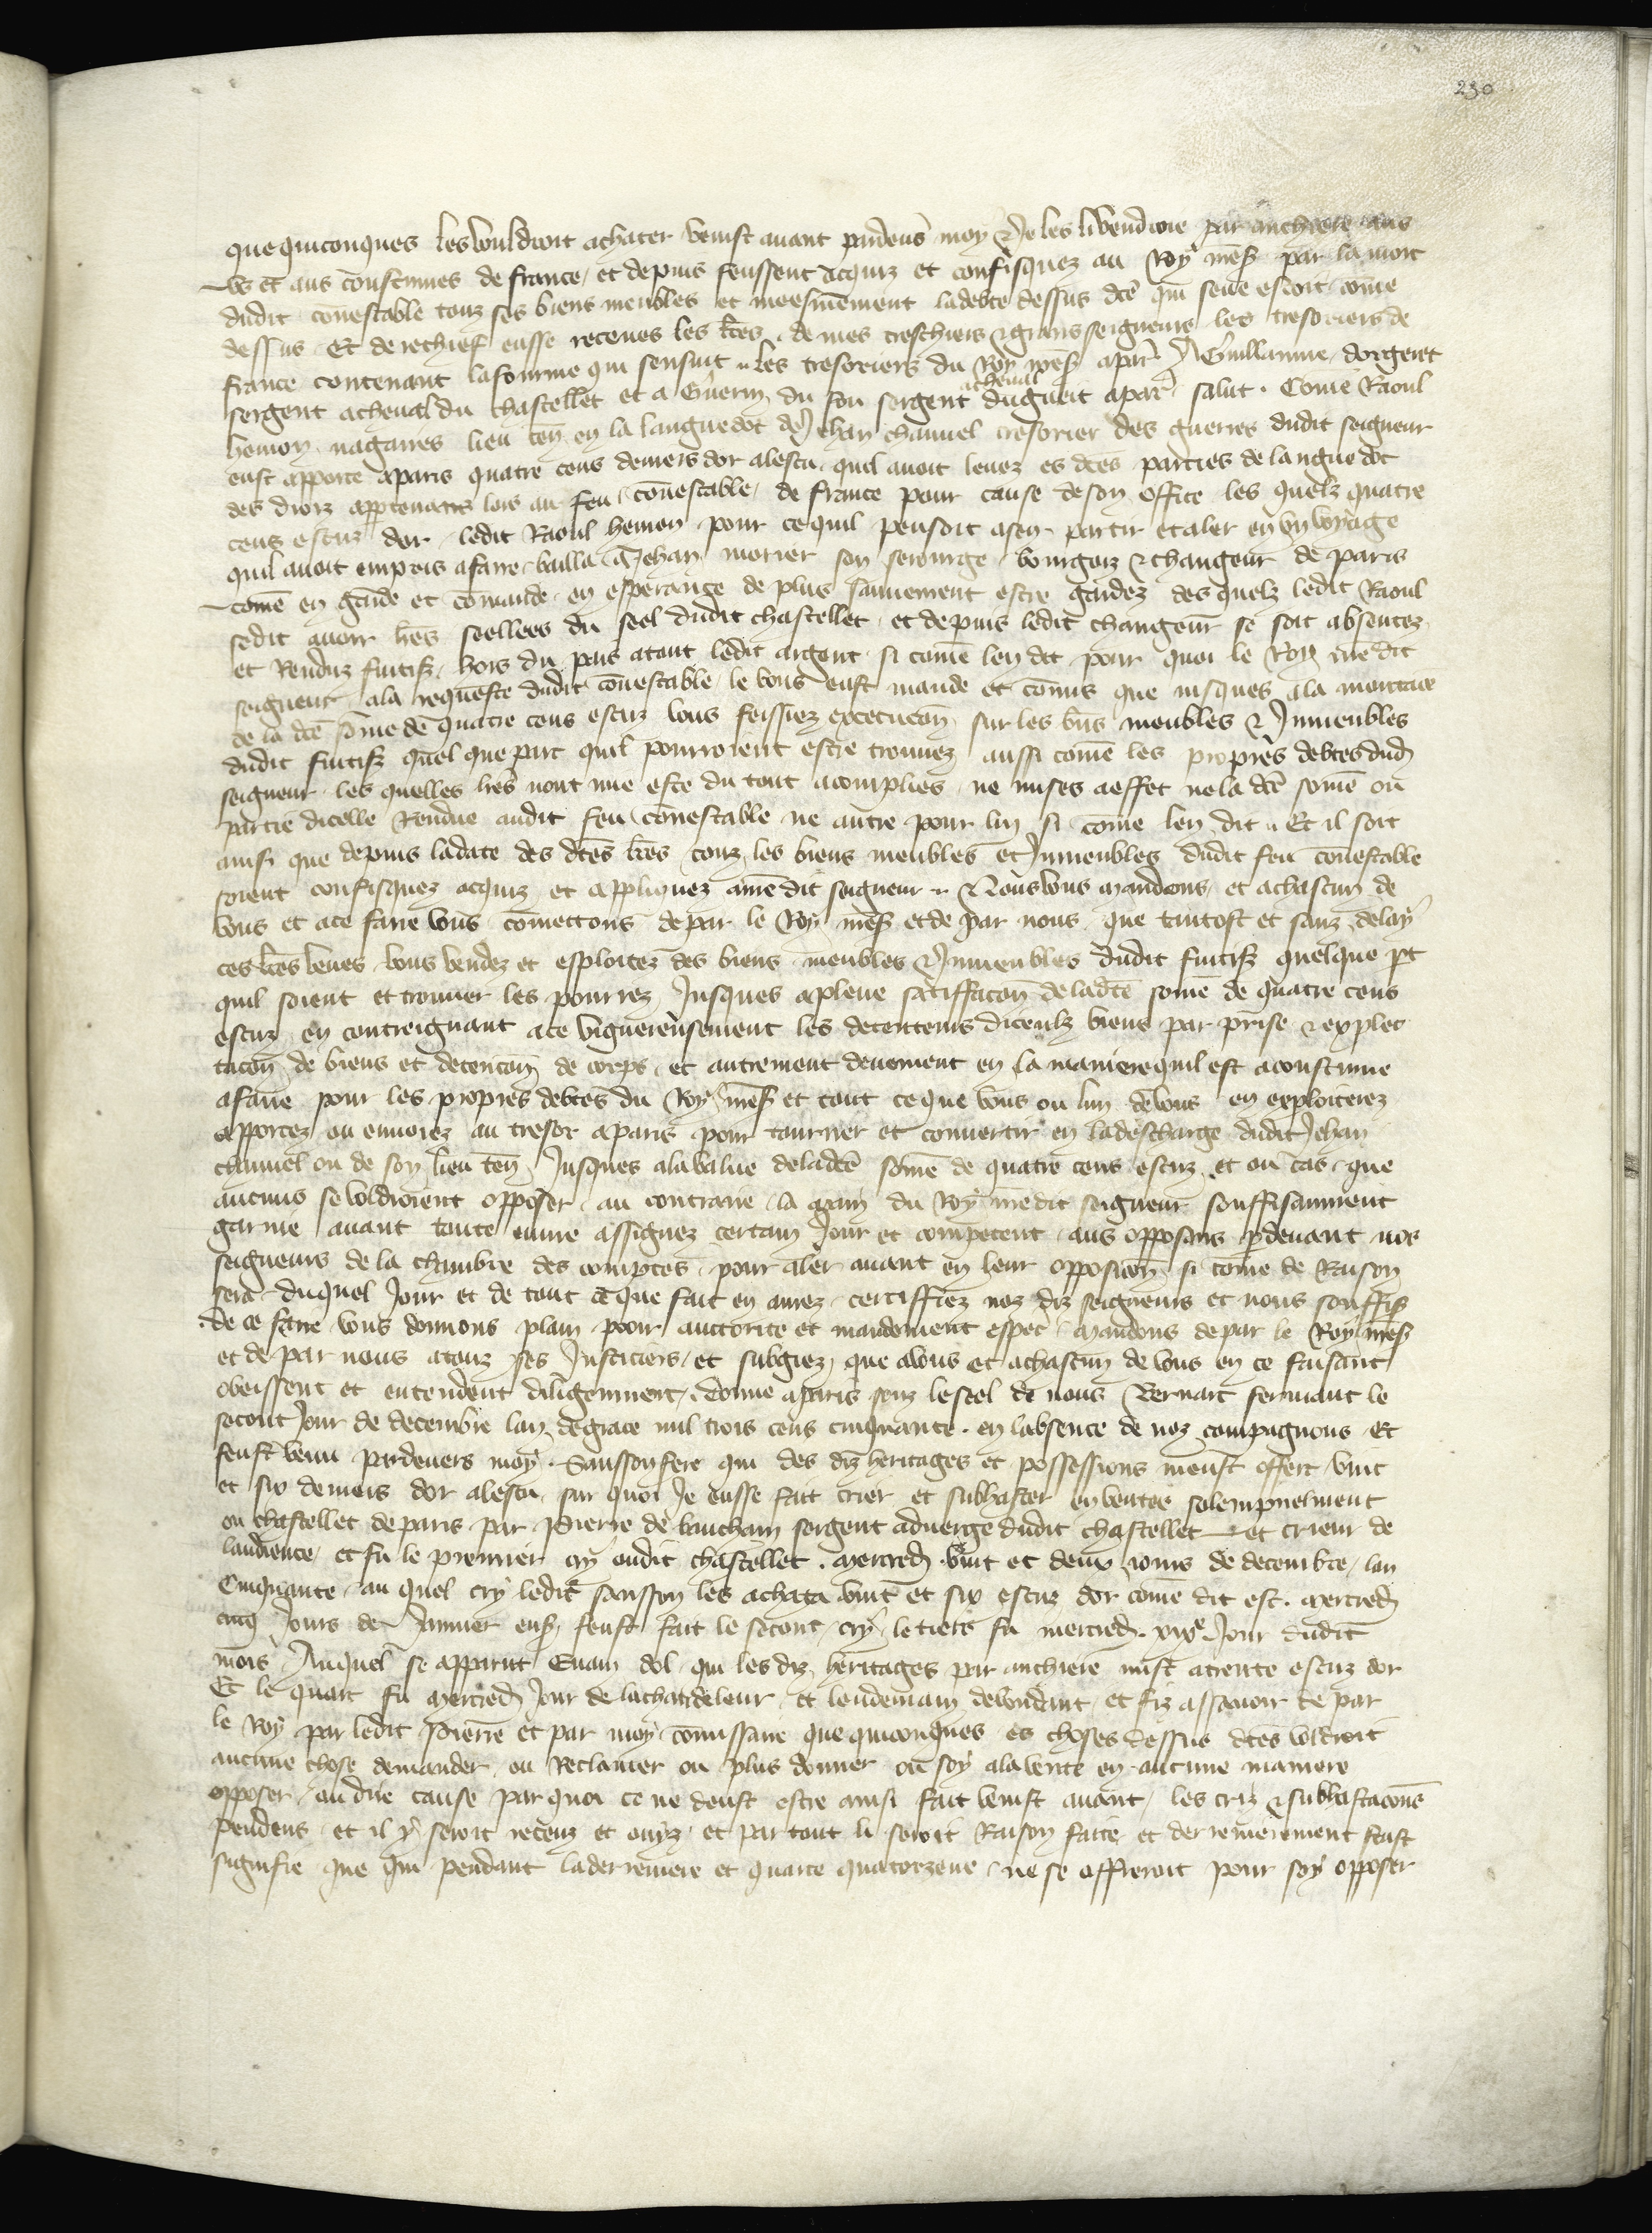 230
que quiconques les vouldroit achater venist avant pardeus moy & Je les li vendroie par anchiere aus
us et aus coustumes de france, et depuis feussent acquiz et confisquez au Roy mess par la mort
dudit connestable touz ses biens meubles et meesmement ladebte dessus dce qui seue estoit come
dessus. Et de rechief eusse receues les lres de mes treschiers & grans seigneurs les tresoriers de
france contenant lafourme qui sensuit .. Les tresoriers du Roy mess apar A Guillaume dorgeret
sergent acheval du chastellet et a Guerin du fou sergent acheval du gueit apar salut. Come Raoul
hemon nagaires lieu ten en la langue doc de Jehan chauvel tresorier des guerres dudit seigneur
eust apporte aparis quatre cens deniers dor alescu quil avoit levez es dces parties de langue doc
des droiz apptenans lors au feu connestable de france pour cause de son office les quelz quatre
cens escuz dor ledit Raoul hemon pour ce quil pensoit asen partir et aler en un voyage
quil avoit empris afaire bailla a Jehan morier son serourge bourgois & changeur de paris
come en garde et comande en esperance de plus sauvement estre gardez des quelz ledit Raoul
sedit avoir lres seellees du seel dudit chastellet et depuis ledit changeur se soit absentez
et Renduz fuitif hors du pais atout ledit argent si come len dit pour quoi le Roy me dit
seigneur ala requeste dudit connestable le vous eust mande et comis que jusques ala montance
de la dce some de quatre cens escuz vous feissiez execucon sur les bns meubles & Inmeubles
dudit fuitif quel que part quil pourroient estre trouvez aussi come les propres debtes dud
seigneur les quelles lres nont mie este du tout acomplies ne mises aeffet ne la dce some ou
partie dicelle Rendue audit feu connestable ne autre pour lui si come len dit .. Et il soit
ainsi que depuis ladate des dces lres touz les biens meubles et Inmeubles dudit feu connestable
soient confisquez acquiz et appliquez a me dit seigneur .. Nous vous mandons et achascun de
vous et ace faire vous comettons depar le Roy mess et de par nous que tantost et sanz delay
ces lres veues vous vendez et esploitez des biens meubles & Inmeubles dudit fuitif quelque pt
quil soient et trouver les pourrez Jusques apleine satiffacon deladce some de quatre cens
escuz en contreignant ace viguereusement les detenteurs diceulx biens par prise & explec
tacon de biens et detencon de corps et autrement deuement en la maniere quil est acoustume
afaire pour les propres debtes du Roy mess et tout ce que vous ou lun de vous en exploiterez
apportez ou envoiez au tresor aparis pour tourner et convertir en ladescharge dudit Jehan
chauvel ou de son lieu ten Jusques alavalue deladce some de quatre cens escuz et ou cas que
aucuns se voldroient opposer au contraire la main du Roy me dit seigneur souffisaument
garnie avant toute euvre assignez certain Jour et competent aus opposans pdevant nos
seigneurs de la chambre des comptes pour aler avant en leur opposicon si come de Raison
sera duquel Jour et de tout ce que fait en aurez certiffiez noz diz seigneurs et nous souffis
de ce faire vous donnons plain poour auctorite et mandement especi mandons depar le Roy mess
et de par nous atouz ses Justiciers et subgiez que avous et achascun de vous en ce faisant
obeissent et entendent diligemment. donne aparis souz lescel de nous Bernart fermant le
secont Jour de decembre lan degrace mil trois cens cinquante. en labsence de noz compaignons. Et
feust venu pardevers moy Sansson fere qui des diz heritages et possessions meust offert vint
et six deniers dor alescu sur quoi Je eusse fait crier et subhaster en ventee solempnelment
ou chastellet deparis par Pierre de vauchain sergent averge dudit chastellet et crieur de
laudience, et fu le premier cry oudit chastellet. mercredi vint et deux jours de decembre, lan
Cinquante, au quel cry ledit sansson les achata vint et six escuz dor come dit est. mercredi
cinq Jours de Janvier ens feust fait le secont cry le tiers fu mercredi .xixe. Jour dudit
mois Auquel se apparut Evain dol qui les diz heritages par anchiere mist atrente escuz dor
Et le quart fu mercredi Jour de lachandeleur, et lendemain devendant, et fiz assavoir de par
le Roy par ledit Pierre et par moy comissaire que quiconques es choses dessus dces voldroit
aucune chose demander ou Reclamer ou plus donner ou soy ala vente en aucune maniere
opposer, ou dire cause par quoi ce ne deust estre ainsi fait venist avant, les criz & subhastacons
pendens et il y seroit receuz et oniz et par tout li seroit Raison faite et derrenierement feust
signifie que qui pendant laderreniere et quarte quatorzene ne se offreroit pour soy opposer